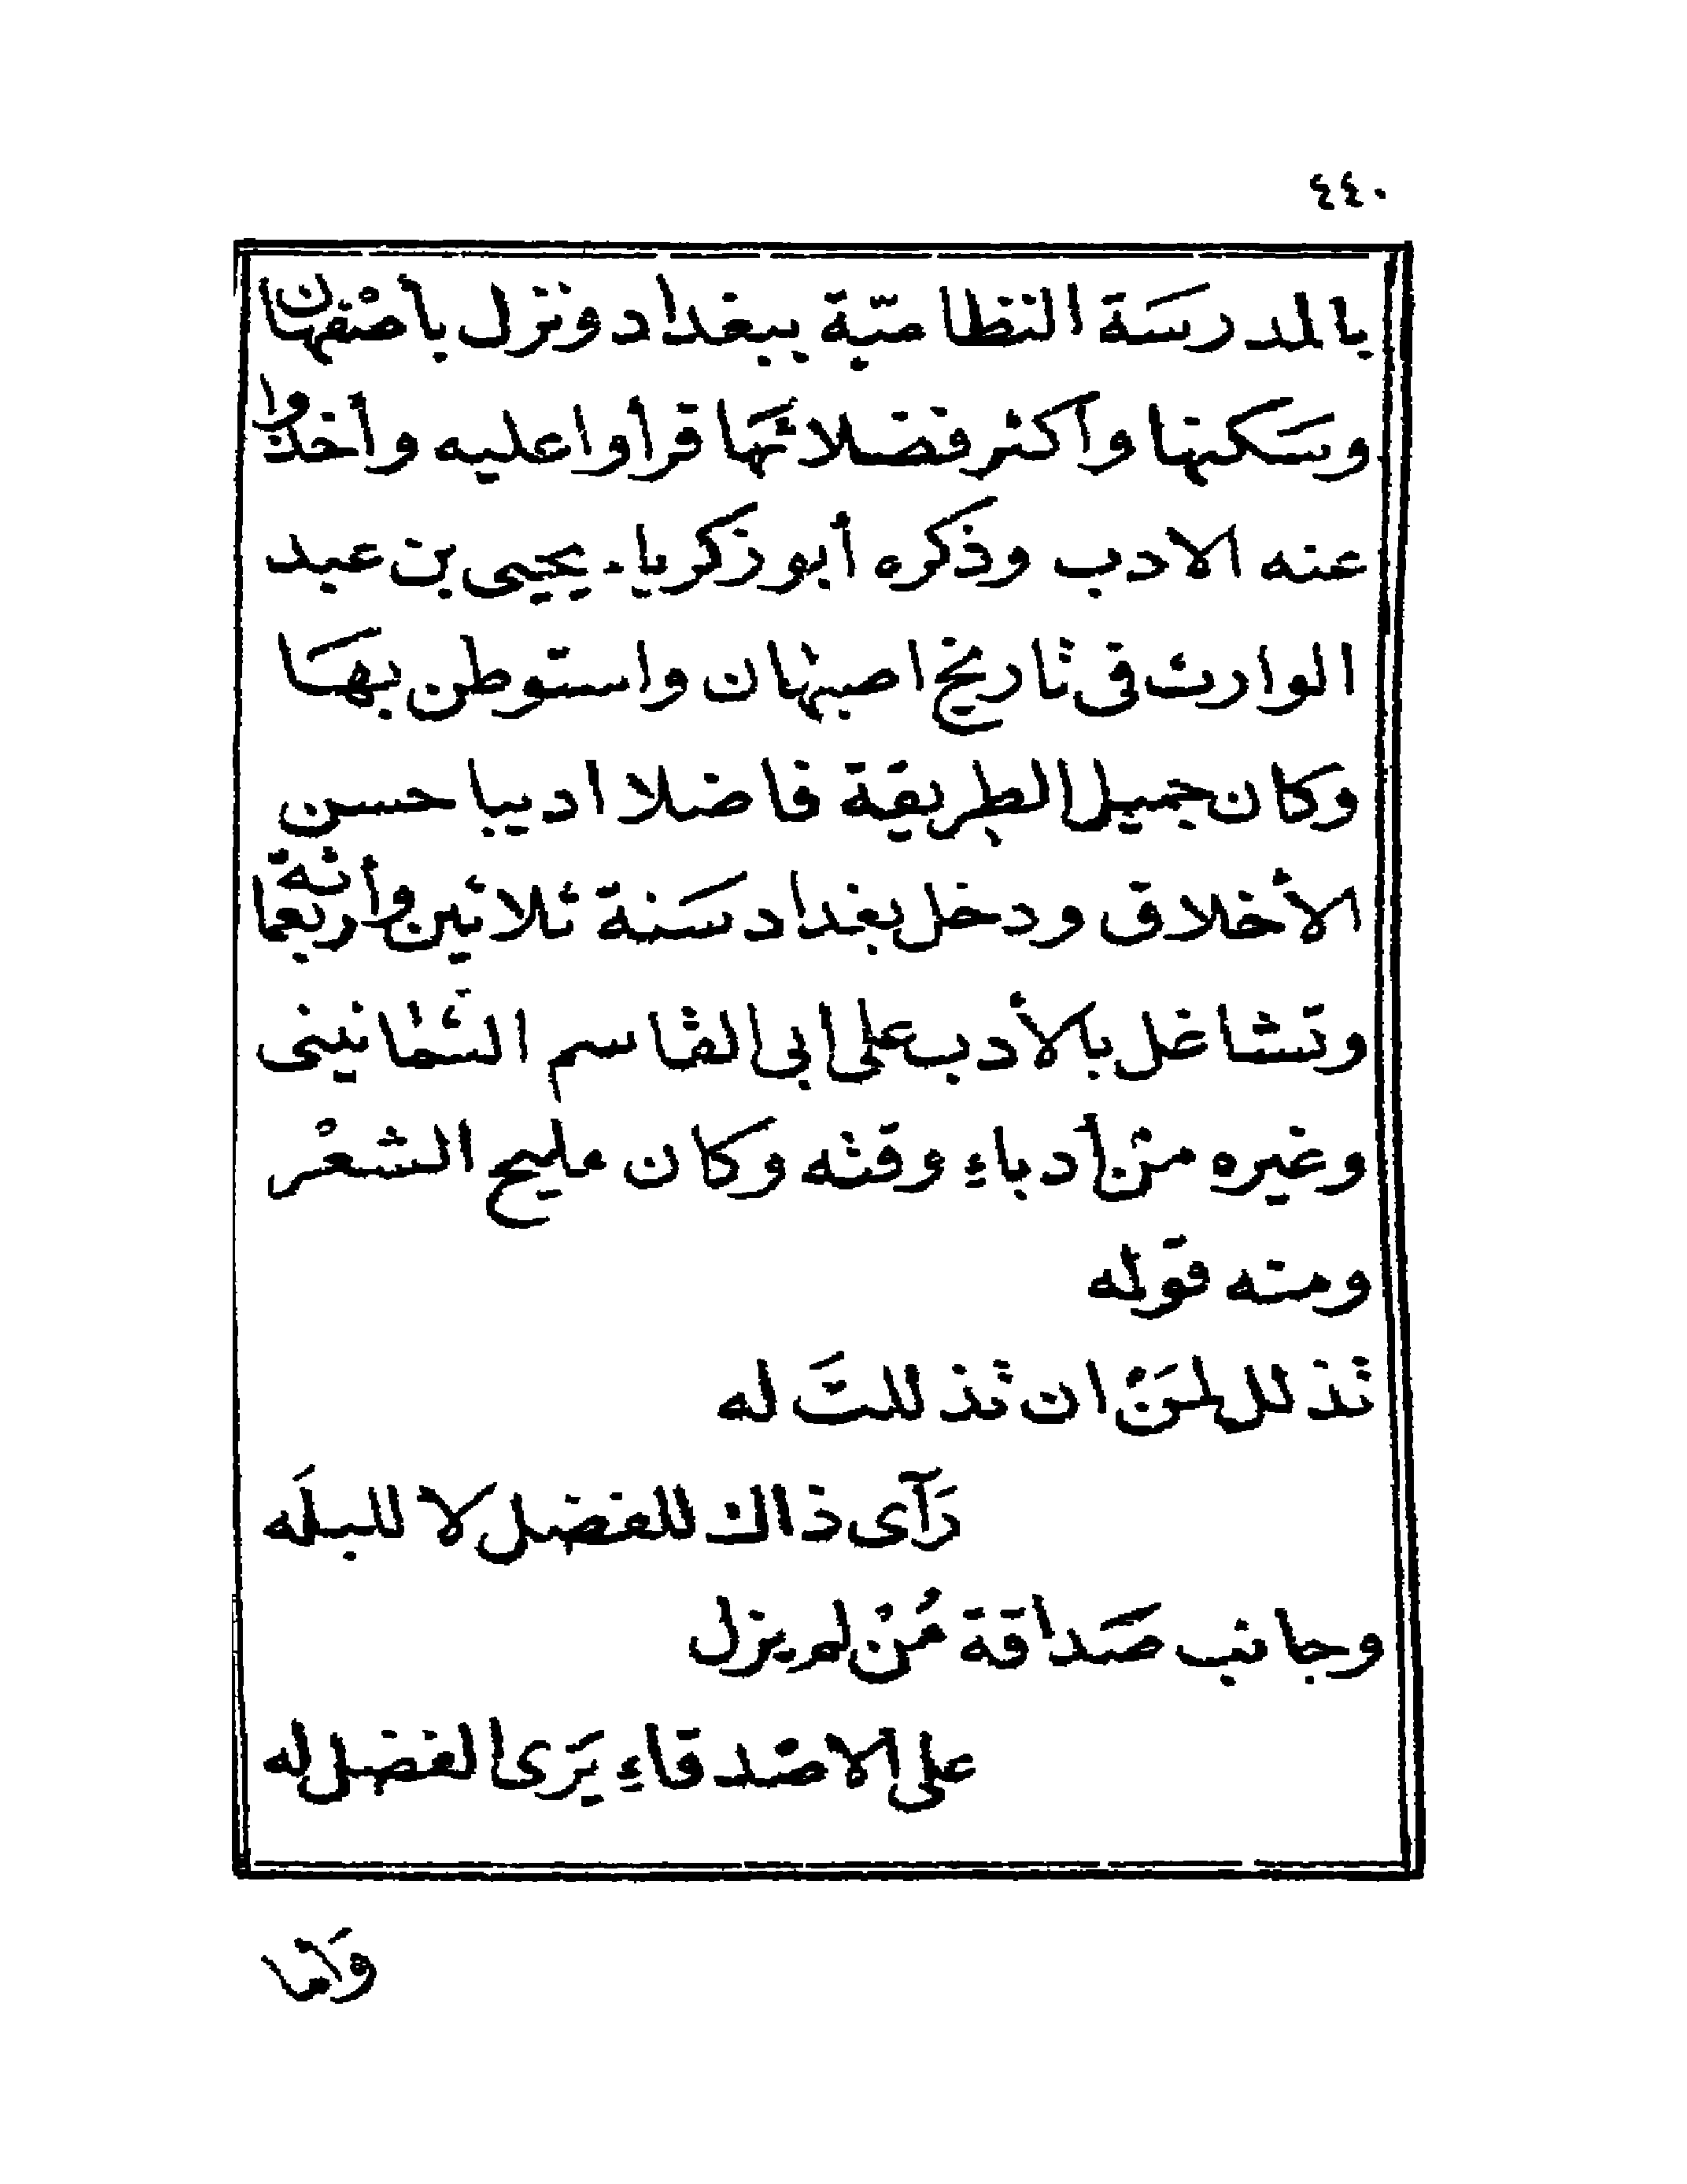 ٤٤٠
بالمدرسَة النظاميّة ببغداد ونزل بأصْفهان
وسَكنها وأكثر فضلائهَا قرأوا عليه وأخذوا
عنه الادب وذكره أبو زكرياء يحيى بن عبد
الوارث فى تاريخ اصبهان واستوطن بهَا
وكان جميل الطريقة فاضلا اديبا حسن
الأخلاق ودخل بغداد سَنة ثلاثين وأربعمائة
وتشاغل بالأدب على ابى القاسم الثَمانينى
وغيره منْ أدباءِ وقته وكان مليح الشعْر
ومنه قوله
تذلل لمَنْ ان تذللتَ له
رَآى ذاك للفضل لا للبلَه
وجانب صَداقة مُنْ لم يزل
على الاصْدقاءِ يَرى الفضل له
وَامّا